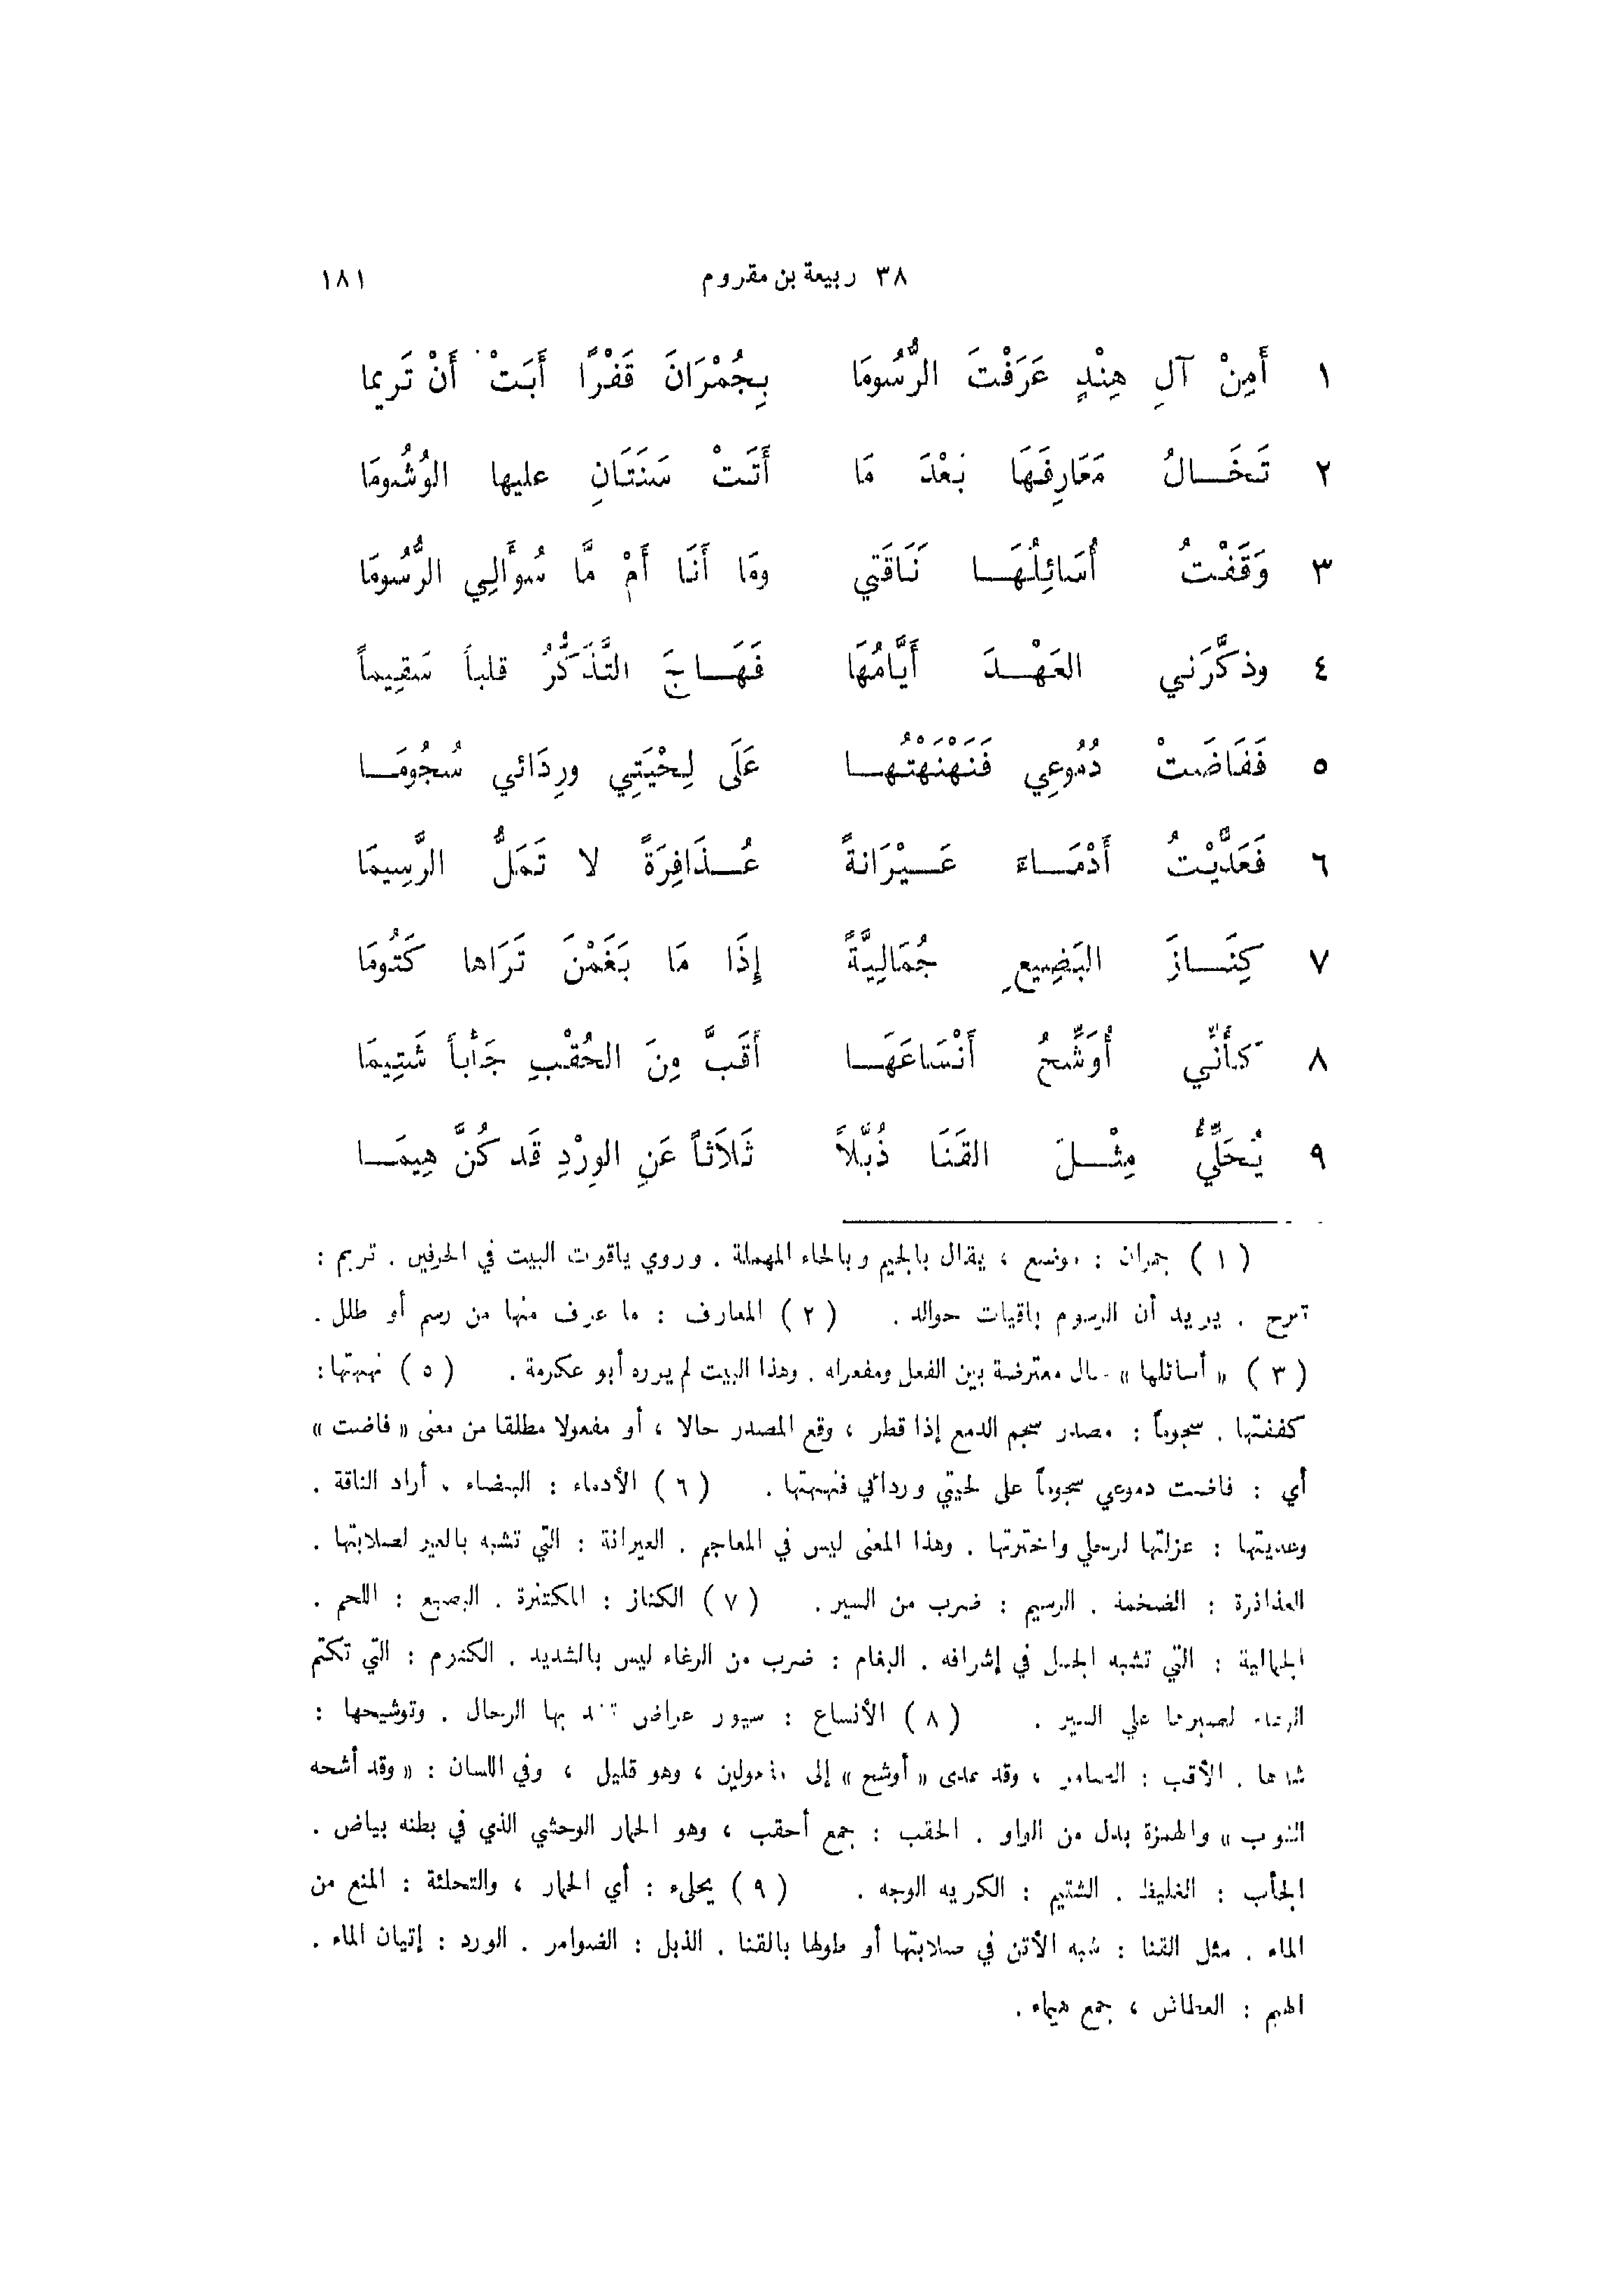 ٣٨ ربيعة بن مقروم ١٨١
١ أَمِنْ آلِ هِنْدٍ عَرَفْتَ الرُّسُومَا بِجُمْرَانَ قَفْرًا أَبَتْ أَنْ تَرِيما
٢ تَخَالُ مَعَارِفَهَا بَعْدَ مَا أَتَتْ سَنَتَانِ عليها الوُشُومَا
٣ وَقَفْتُ أُسَائِلُهَا نَاقَتِي ومَا أَنَا أَمْ مَّا سُوأَلِي الرُّسُومَا
٤ وذكَّرَني العَهْدَ أَيَّامُهَا فَهَاجَ التَّذَكُّرُ قلباً سَقِيماً
٥ فَفَاضَتْ دُمُوعِي فَنَهْنَهْتُها عَلَى لِحْيَتِي ورِدَائي سُجُومَا
٦ فَعَدَّيْتُ أَدْمَاءَ عَيْرَانةً عُذَافِرَةً لا تَمَلُّ الرَّسِيمَا
٧ كِنَازَ البَضِيعِ جُمَالِيَّةً إِذَا مَا بَغَمْنَ تَرَاها كَتُومَا
٨ كأَنِّي أُوَشِّحُ أَنْسَاعَهَا أَقَبَّ مِنَ الحُقْبِ جَأْباً شَتِيمَا
٩ يُحَلِّئُ مِثْلَ القَنَا ذُبَّلاً ثَلاَثاً عَنِ الوِرْدِ قَد كُنَّ هِيمَا
(١) جمران : موضع ، يقال بالجيم وبالحاء المهملة . وروي ياقوت البيت في الحرفين . تريم :
تبرح . يريد أن الرسوم باقيات خوالد . (٢) المعارف : ما عرف منها من رسم أو طلل .
(٣) « أسائلها » حال معترضة بين الفعل ومفعوله . وهذا البيت لم يروه أبو عكرمة . (٥) نهنهتها :
كففتها . سجوماً : مصدر سجم الدمع إذا قطر ، وقع المصدر حالا ، أو مفعولا مطلقا من معنى « فاضت »
أي : فاضت دموعي سجوماً على لحيتي وردائي فنهنهتها . (٦) الأدماء : البيضاء ، أراد الناقة .
وعديتها : عزلتها لرحلي واخترتها . وهذا المعنى ليس في المعاجم . العيرانة : التي تشبه بالعير لصلابتها .
العذافرة : الضخمة . الرسيم : ضرب من السير . (٧) الكناز : المكتنزة . البضيع : اللحم .
الجمالية : التي تشبه الجمل في إشرافه . البغام : ضرب من الرغاء ليس بالشديد . الكتوم : التي تكتم
الرغاء لصبرها علي السير . (٨) الأنساع : سيور عراض تشد بها الرحال . وتوشيحها :
شدها . الأقب : الضامر ، وقد عدى « أوشح » إلى مفعولين ، وهو قليل ، وفي اللسان : « وقد أشحه
الثوب » والهمزة بدل من الواو . الحقب : جمع أحقب ، وهو الحمار الوحشي الذي في بطنه بياض .
الجأب : الغليظ . الشتيم : الكريه الوجه . (٩) يحلىء : أي الحمار ، والتحلئة : المنع من
الماء . مثل القنا : شبه الأتن في صلابتها أو طولها بالقنا . الذبل : الضوامر . الورد : إتيان الماء .
الهيم : العطاش ، جمع هيماء .